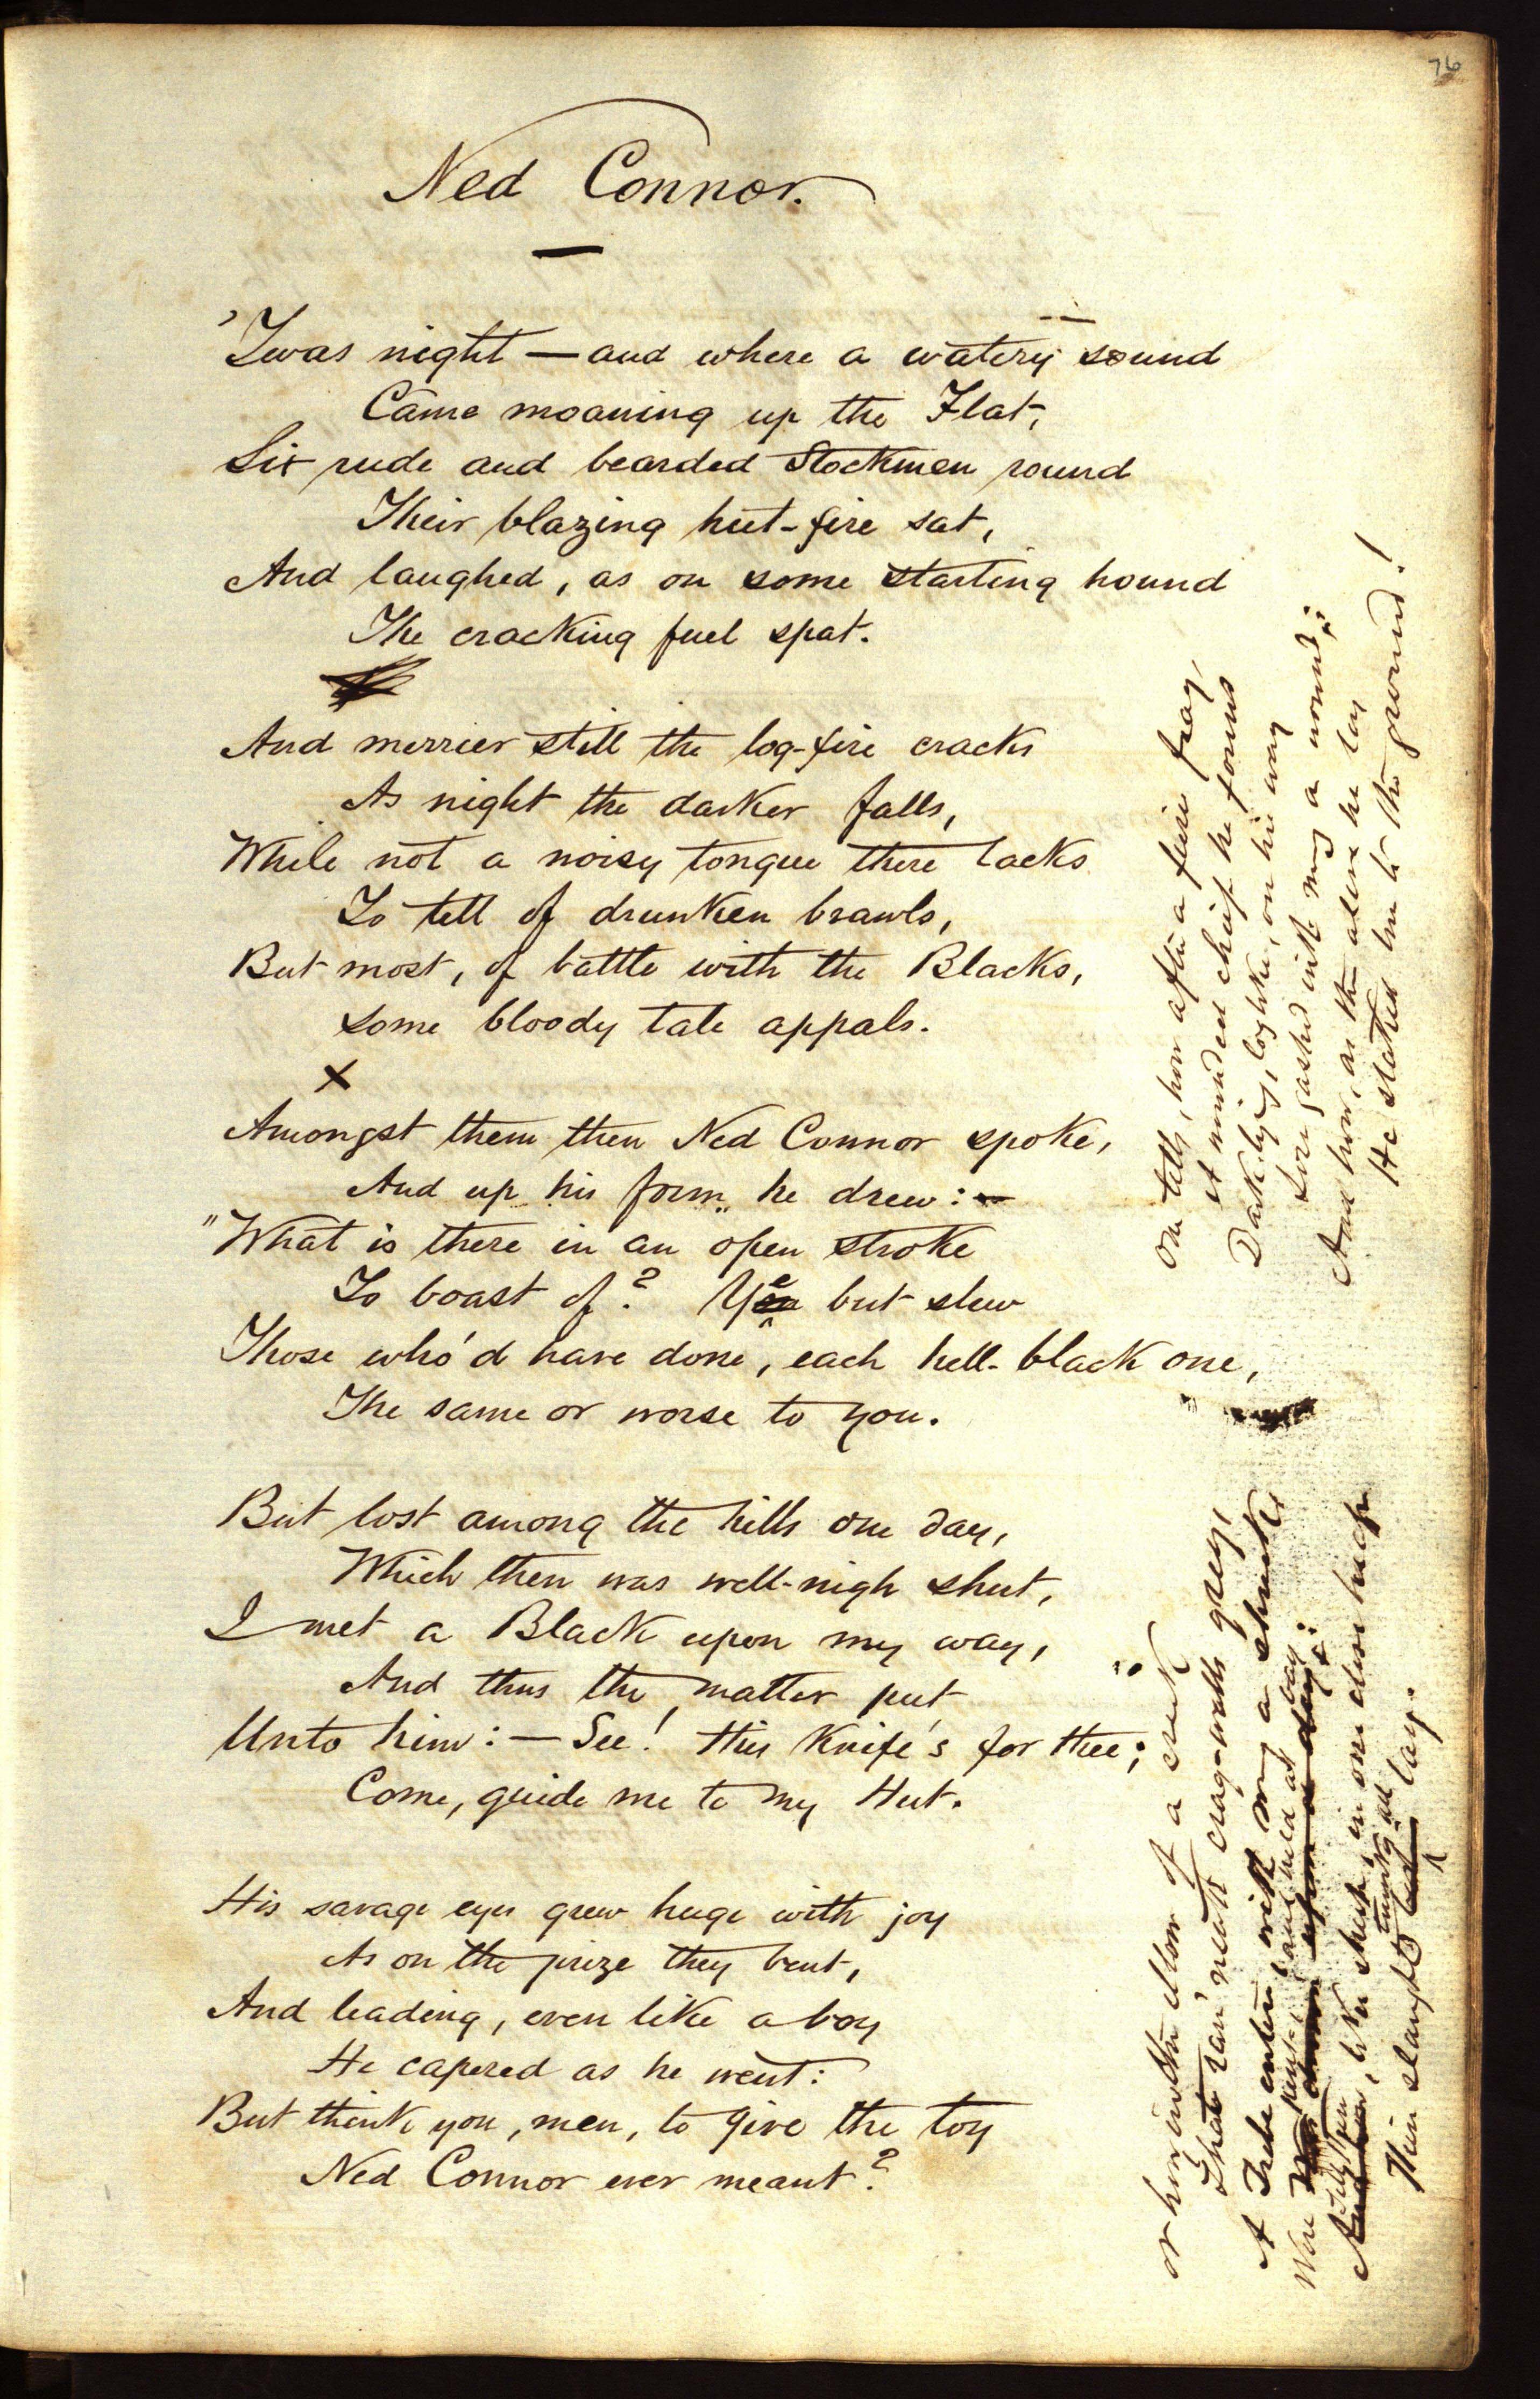 76
Ned Connor.
'Twas night — and where a watery sound
Came moaning up the Flat,
Six rude and bearded Stockmen round
Their blazing hut-fire sat,
And laughed, as on some starting hound
The cracking fuel spat.
And merrier still the log-fire cracks
As night the darker falls,
While not a noisy tongue there lacks
To tell of drunken brawls,
But most, of battle with the Blacks,
Some bloody tale appals.
x
Amongst them then Ned Connor spoke,
And up his form he drew: —
"What is there in an open stroke
To boast of? Ye but slew
Those who'd have done, each hell-black one,
The same or worse to you.
But lost among the hills one day,
Which then was well-nigh shut,
I met a Black upon my way,
And thus the matter put
Unto him: — See! this Knife's for thee;
Come, guide me to my Hut.
His savage eyes grew huge with joy
As on the prize they bent,
And leading, even like a boy
He capered as he went:
But think you, men, to give the toy
Ned Connor ever meant?
One tells, how after a fierce fray,
A wounded chief he found
Dark-lying, log-like, on his way
Sore gashed with many a wound;
And how, as there alive he lay
He staked him to the ground!
Or how in the elbow of a creek
That ran 'neath crag-walls grey,
A Tribe entire with many a shriek
Were pent, and held at bay;
Till there, like sheep, in one close heap
Their slaughtered lay.